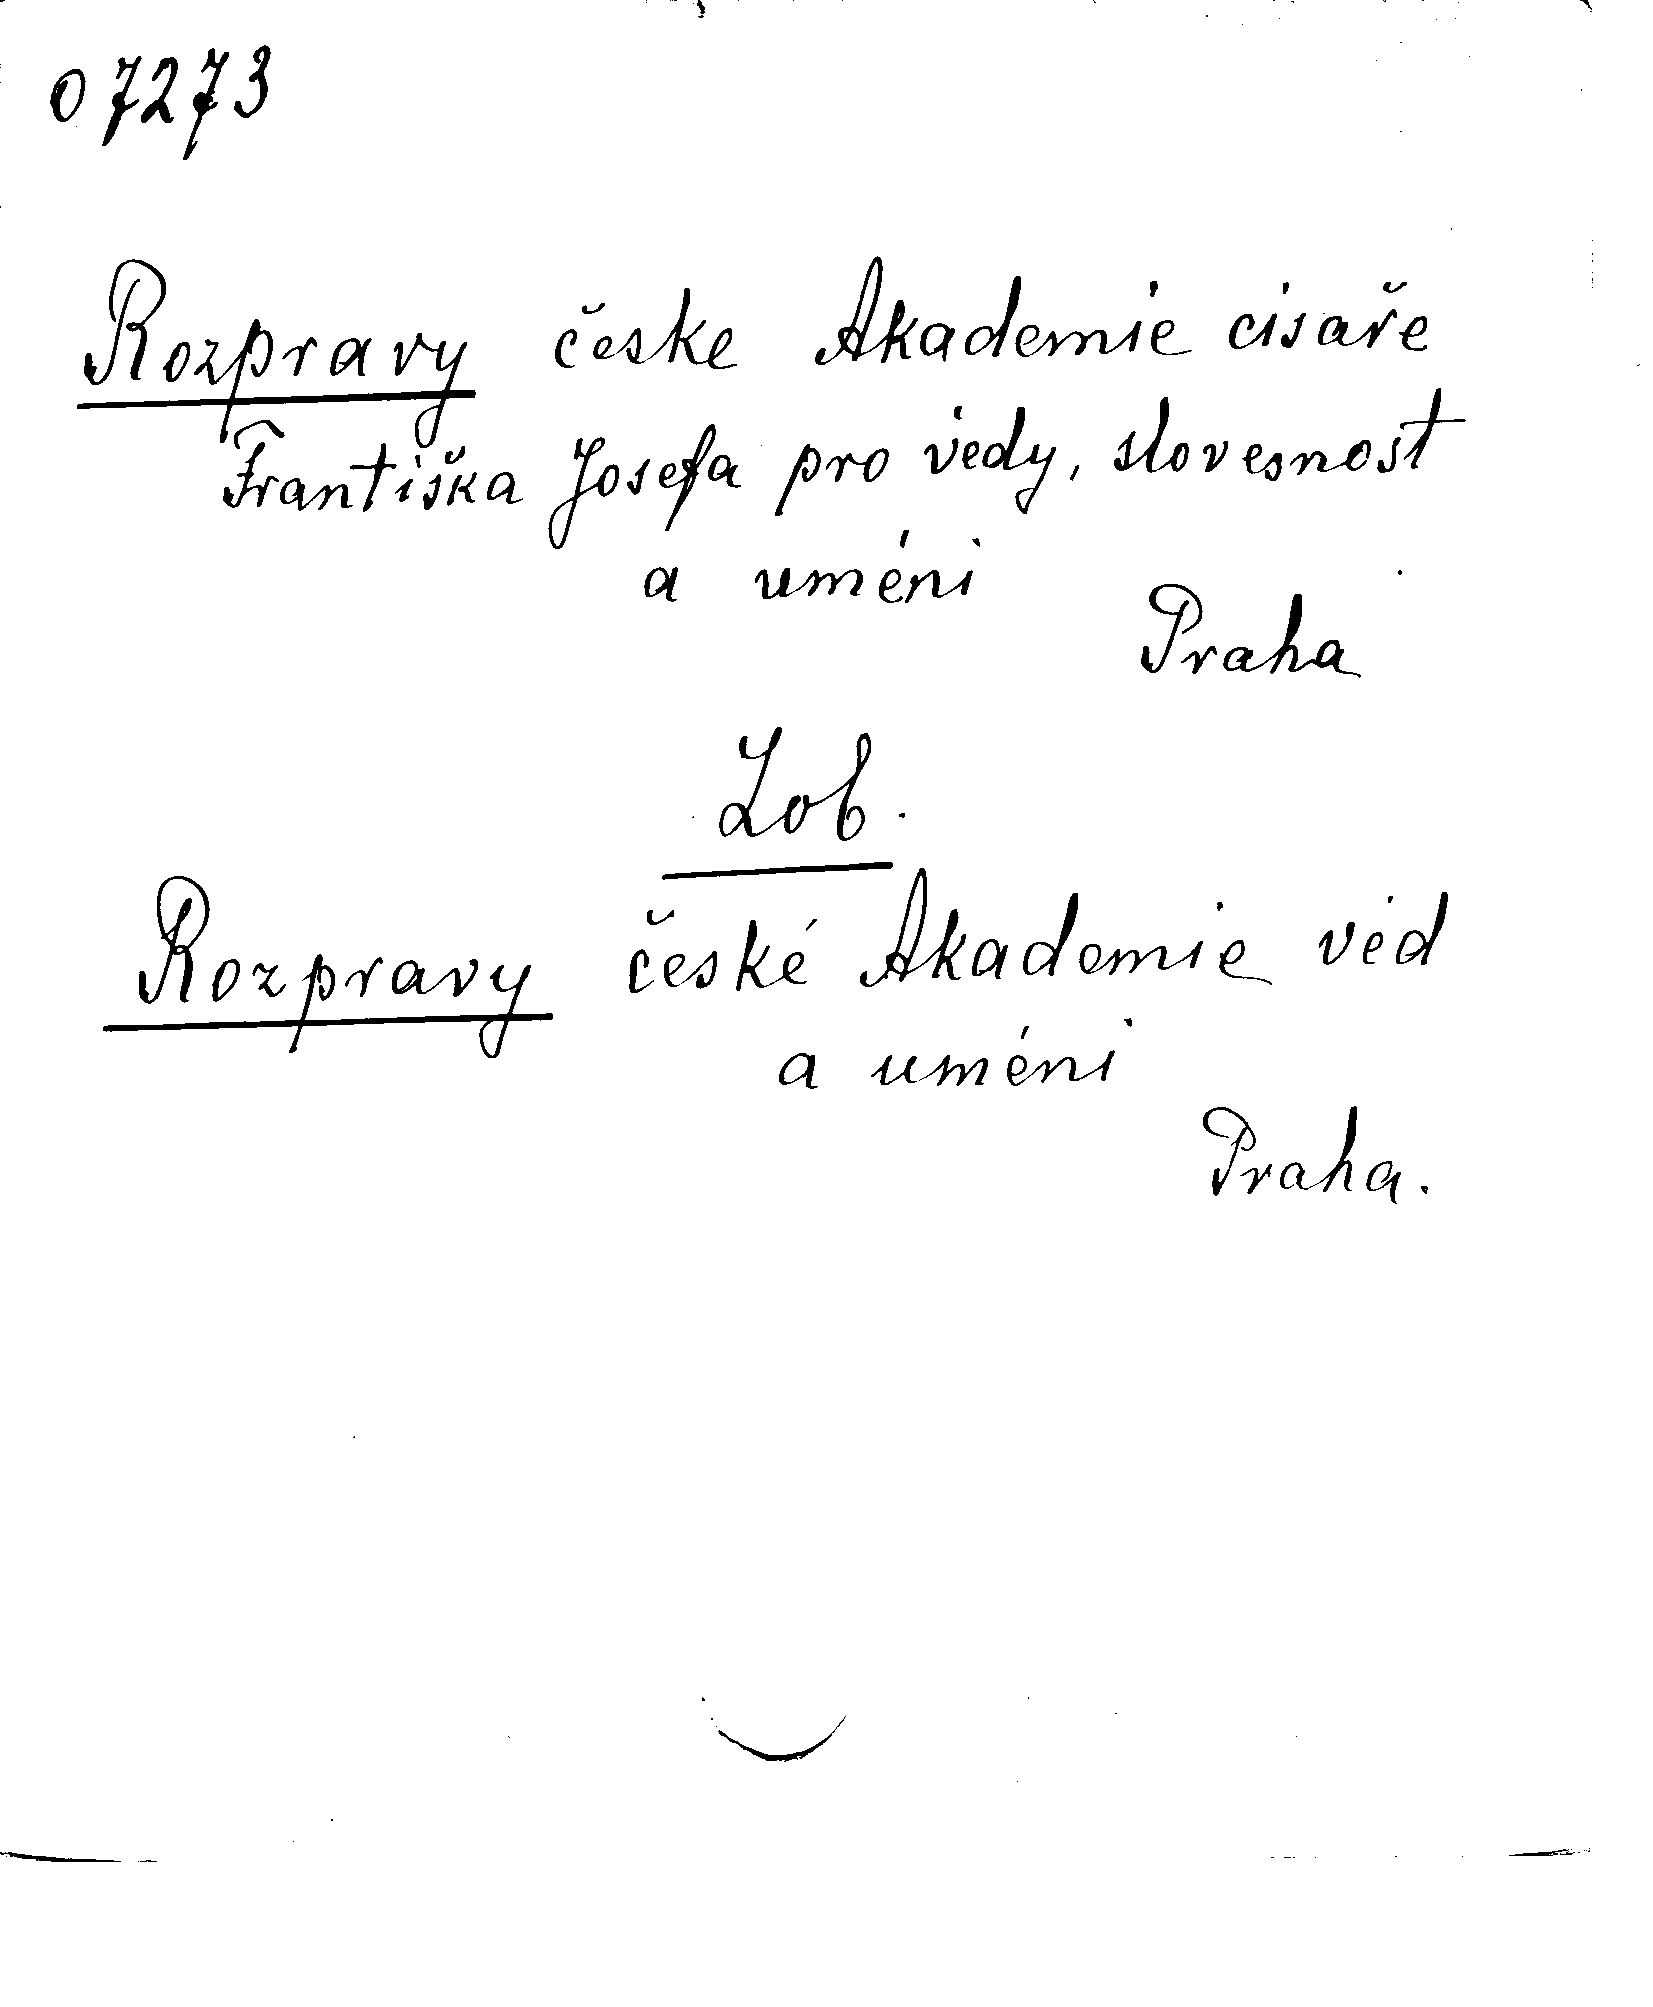 07273
Rozpravy české Akademie cisaře
Františka Josefa pro vědy, slovesnost
a uméni
Praha
Zob.
Rozpravy české Akademie věd
a uméni
Praha.